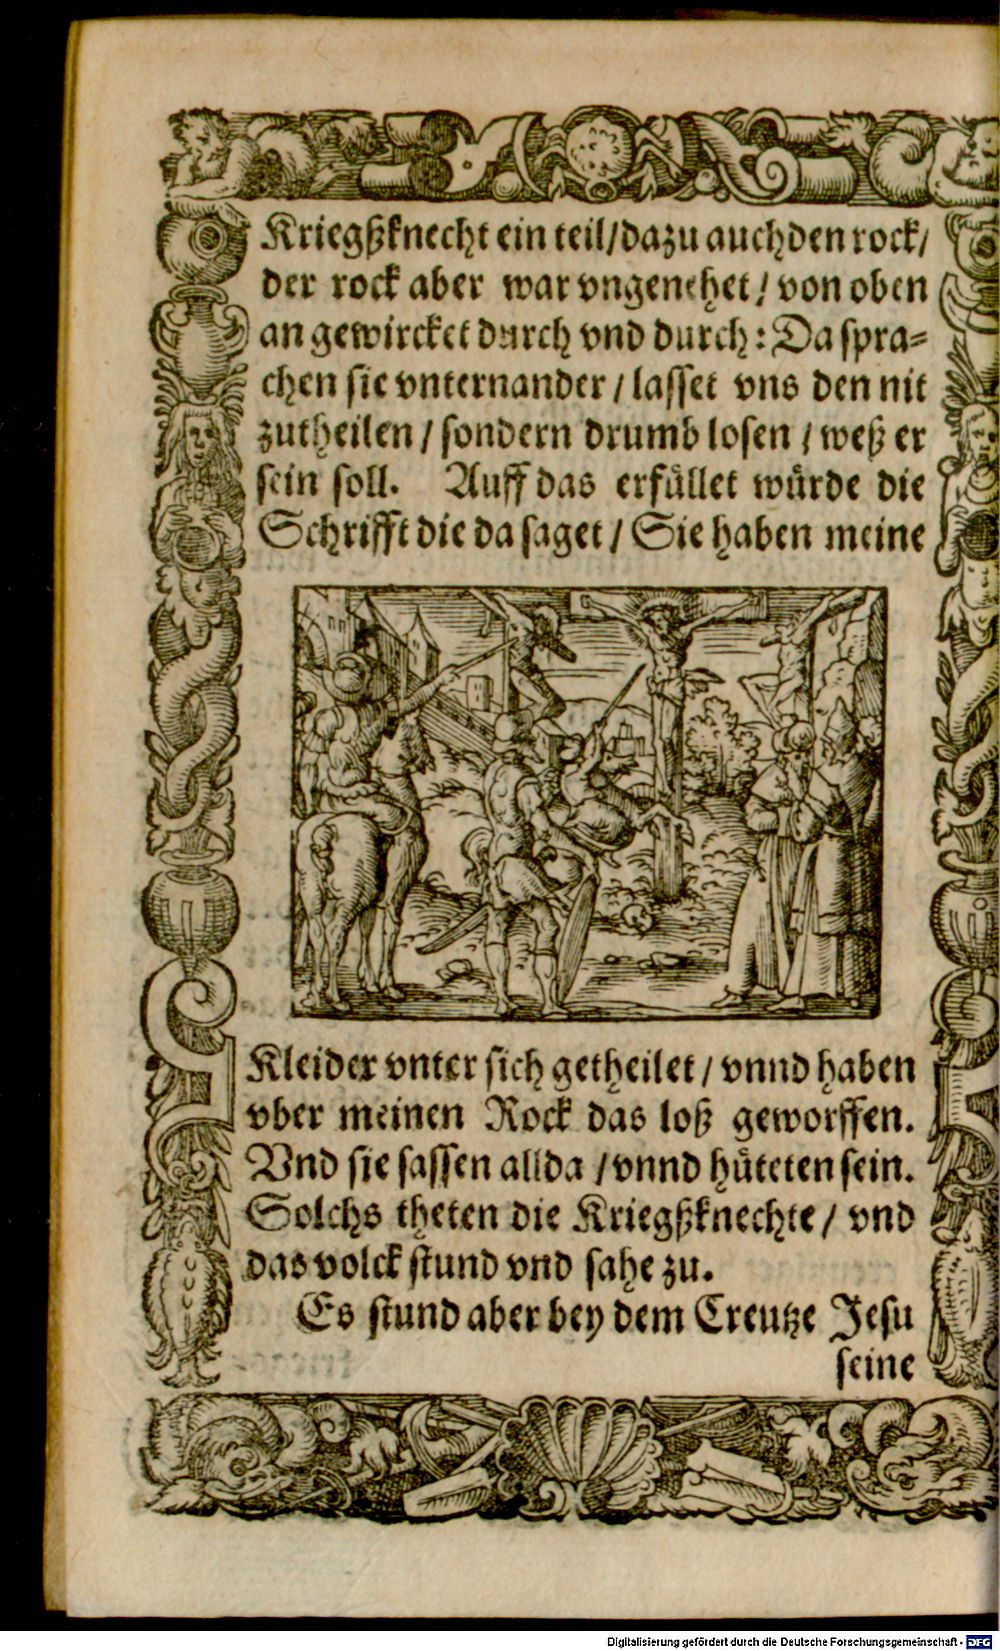 Kriegßknecht ein teil/dazu auch den rock/
der rock aber war vngenehet/ von oben
an gewircket durch vnd durch: Da spra-
chen sie vnternander/ lasset vns den nit
zutheilen/ sondern drumb losen/ weß er
sein soll. Auff das erfüllet würde die
Schrifft die da saget/ Sie haben meine
Kleider vnter sich getheilet/ vnnd haben
vber meinen Rock das loß geworffen.
Vnd sie sassen allda/ vnnd hüteten sein.
Solchs theten die Kriegßknechte/ vnd
das volck stund vnd sahe zu.
Es stund aber bey dem Creutze Jesu
seine
Digitalisierung gefördert durch die Deutsche Forschungsgemeinschaft - DFG